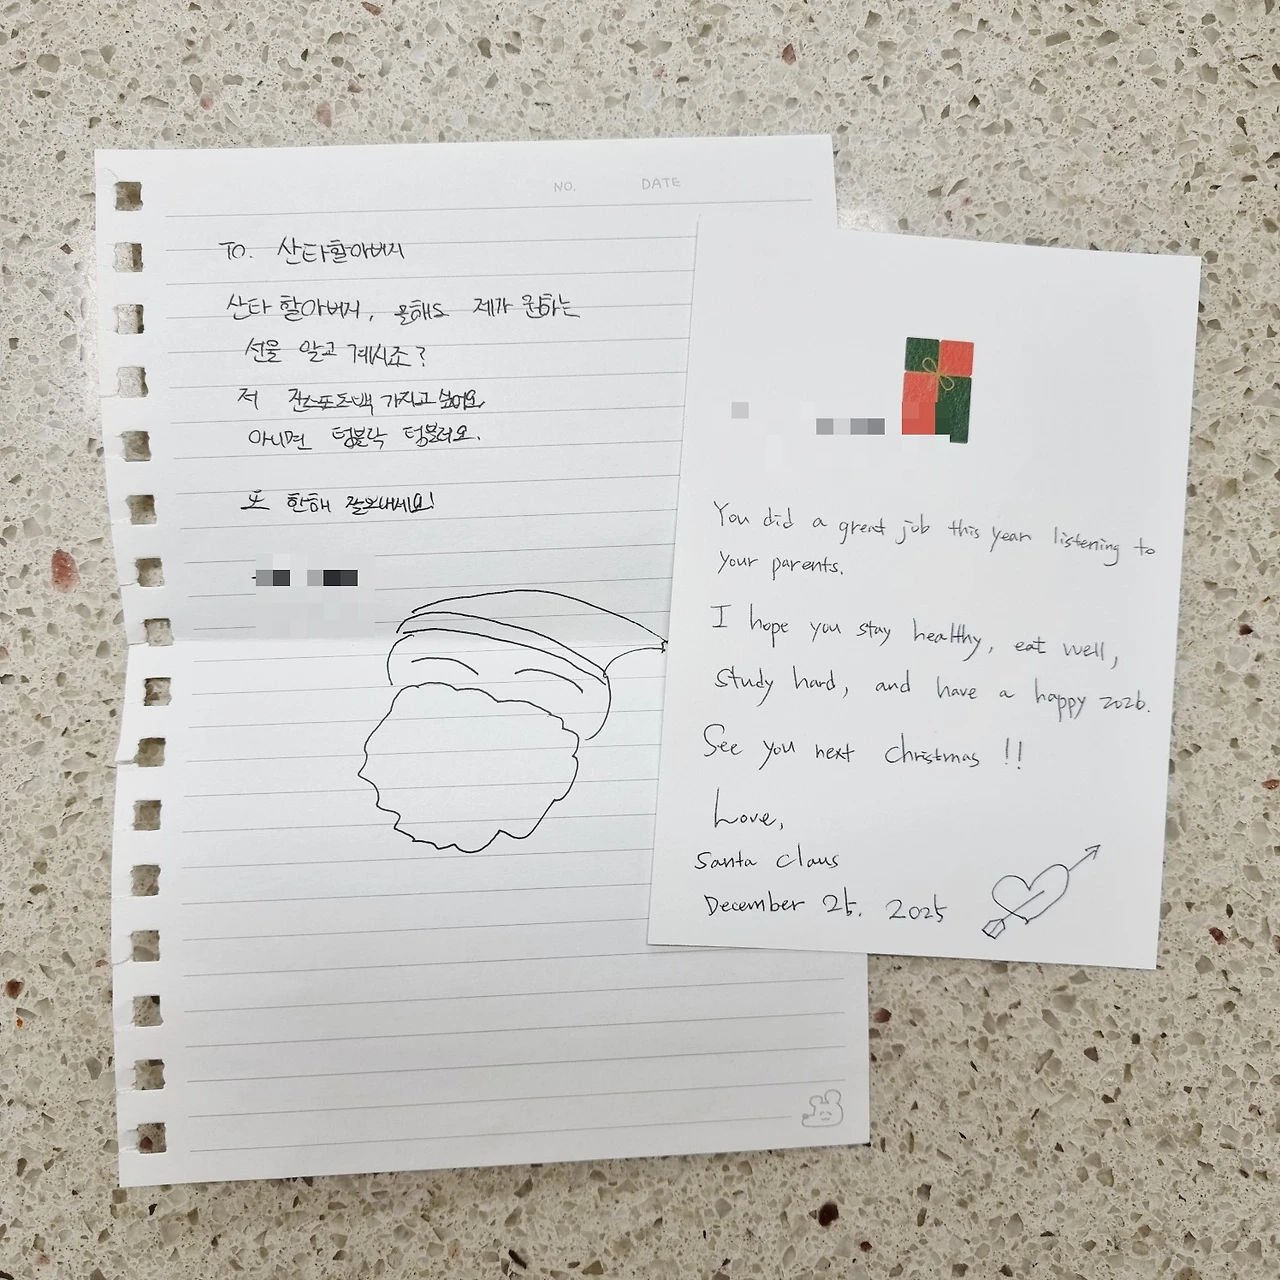 NO. DATE
TO. 산타할아버지
산타할아버지, 올해도 제가 원하는
선물 알고 계시죠?
저 잔스포츠백 가지고 싶어요
아니면 텀블락 텀블러요.
또 한해 잘보내세요!
You did a great job this year listening to
your parents.
I hope you stay healthy, eat well,
study hard, and have a happy 2026.
See you next christmas !!
Love,
Santa Claus
December 25. 2025